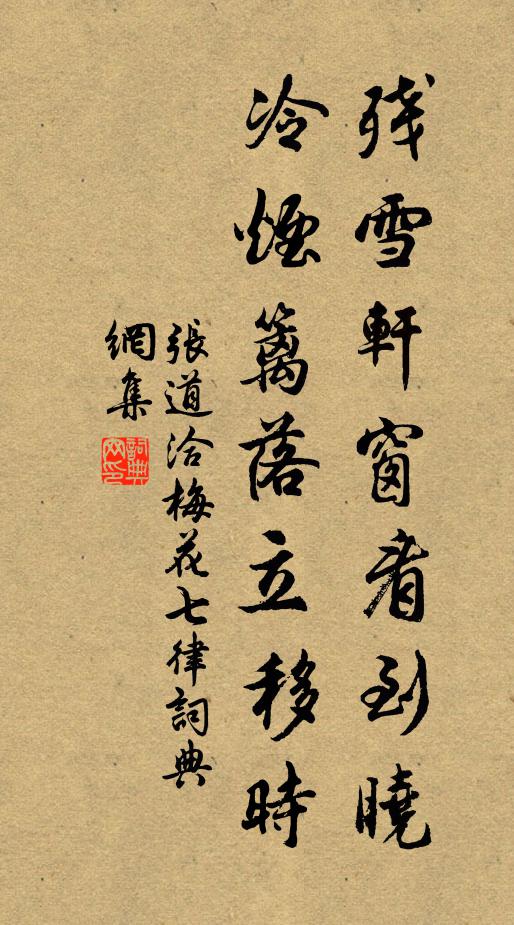 殘雪軒窗看到曉
冷煙籬落立移時
張道洽梅花七律詞典
網集
詞典網印